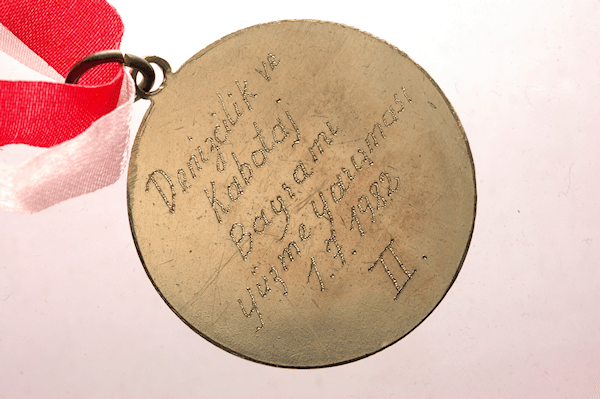 Denizcilik ve
Kabotaj
Bayramı
yüzme yarışması
1.7.1982
II.